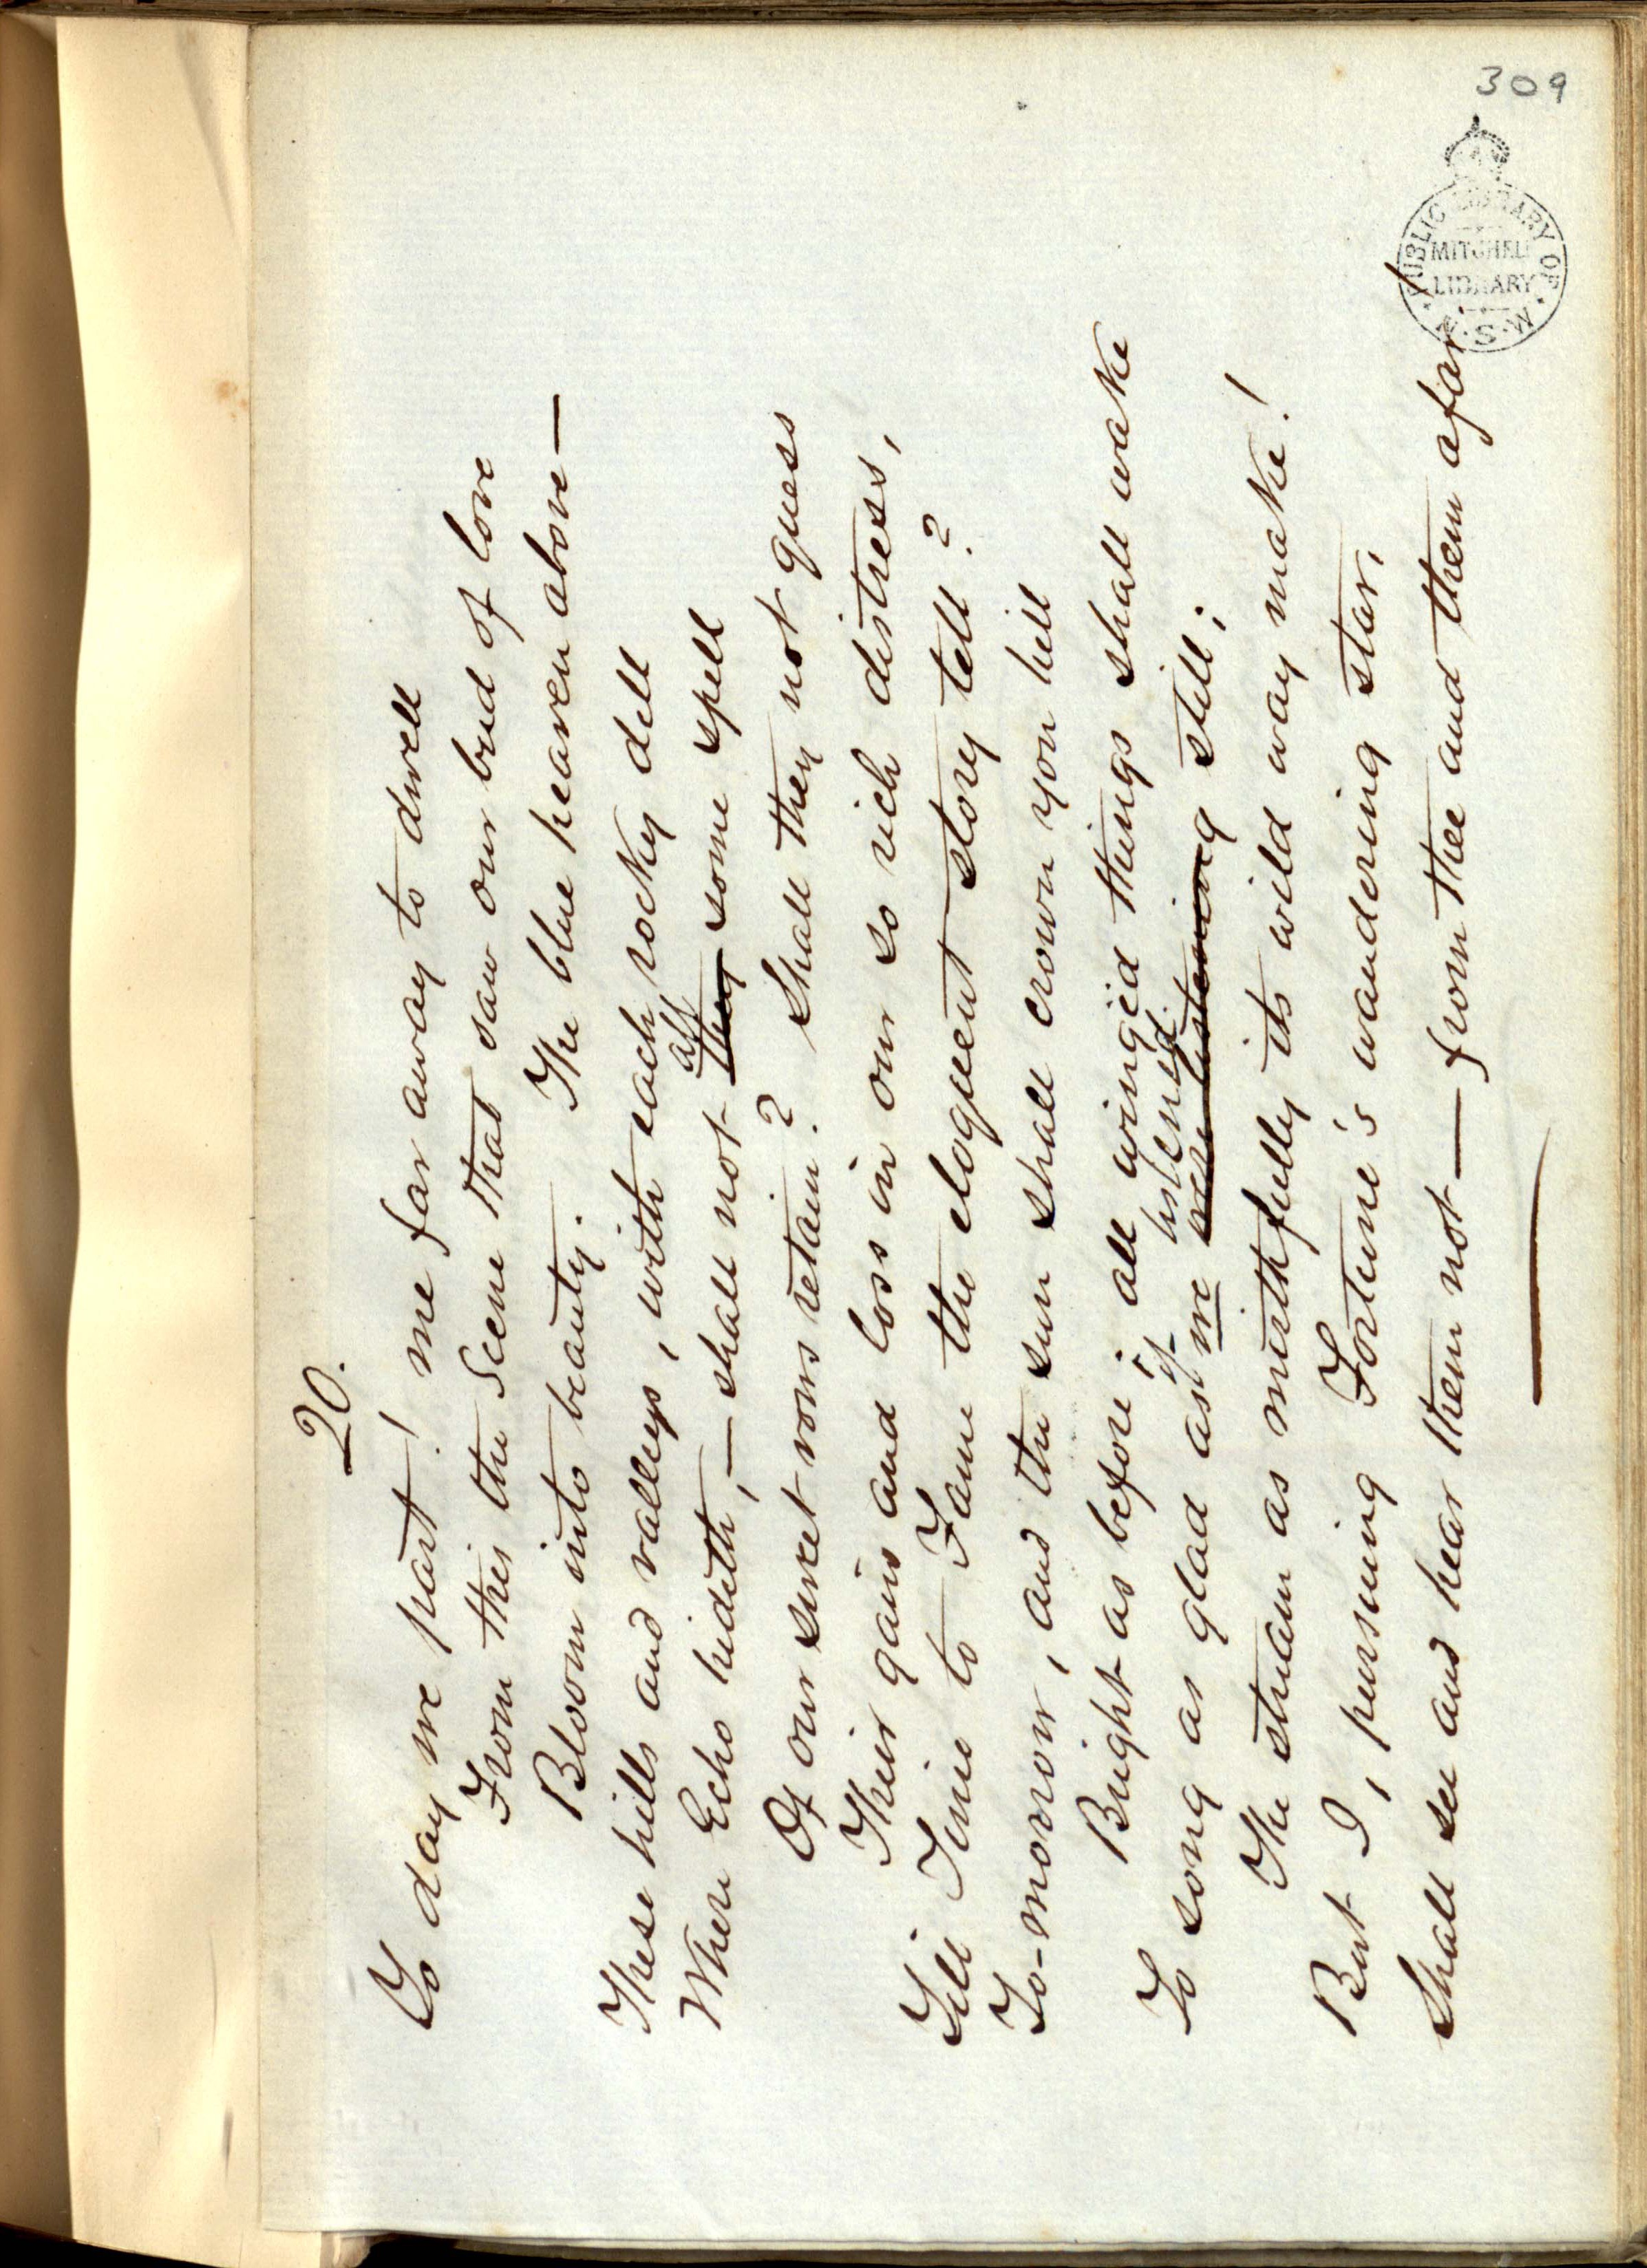 309
PUBLIC LIBRARY OF N.S.W.
MITCHELL
LIBRARY
20.
To day we part! me far away to dwell
From this the Scene that saw our bud of love
Bloom into beauty. The blue heaven above —
These hills and valleys, with each rocky dell
Where Echo hideth, — shall not they some spell
all
Of our sweet vows retain? Shall they not guess
Their gains and loss in our so rich distress,
Till Time to Fame the eloquent story tell?
To-morrow, and the sun shall crown yon hill
Bright as before; all wingëd things shall wake
To song as glad as if we were listening still;
listened
The stream as mirthfully its wild way make!
But I, pursuing Fortune's wandering star,
Shall see and hear them not — from thee and them afar